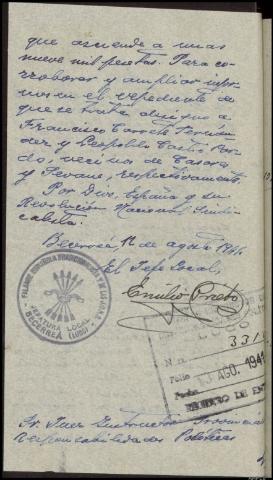 que asciende a unas
nueve mil pesetas. Para co-
rroborar y ampliar infor-
mes en el expediente de
que se trata
Francisco Fernán-
dez y Leopoldo
do, vecinos de
y respectivamente.
Por Dios, España y su
Revolución Nacional Sindi-
calista.
Becerreá 12 de agosto 1941.
El Jefe Local,
Emilio Prieto
FALANGE ESPAÑOLA TRADICIONALISTA Y DE LAS J.O.N.S.
JEFATURA LOCAL
BECERREÁ
(LUGO)
LUGO
331
Folio
AGO. 1941
REGISTRO DE ENT
Sr. Juez Instructor Provincial
Responsabilidades Políticas